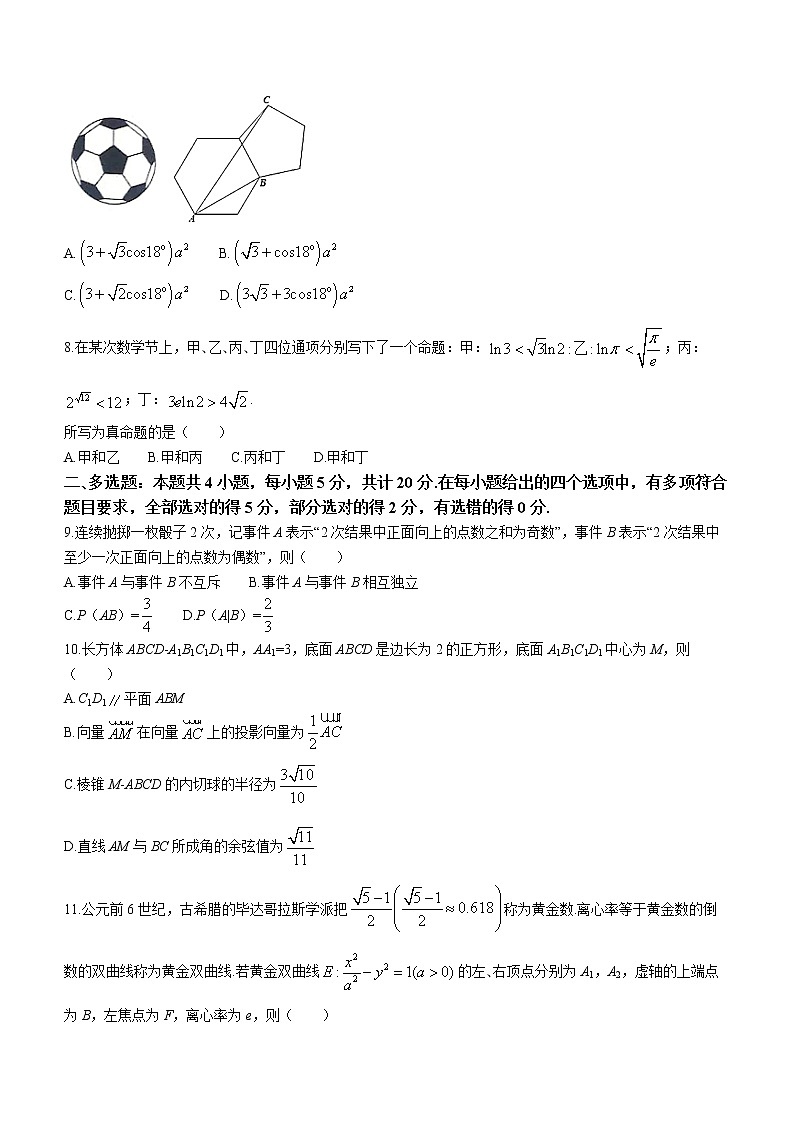 C
B
A
A.(3+√3cos18°)a² B.(√3+cos18°)a²
C.(3+√2cos18°)a² D.(3√3+3cos18°)a²
8.在某次数学节上，甲、乙、丙、丁四位通项分别写下了一个命题：甲：ln3<√3ln2：乙：lnπ<√(π/e)；丙：
2^√12<12；丁：3eln2>4√2.
所写为真命题的是（ ）
A.甲和乙 B.甲和丙 C.丙和丁 D.甲和丁
二、多选题：本题共4小题，每小题5分，共计20分.在每小题给出的四个选项中，有多项符合
题目要求，全部选对的得5分，部分选对的得2分，有选错的得0分.
9.连续抛掷一枚骰子2次，记事件A表示“2次结果中正面向上的点数之和为奇数”，事件B表示“2次结果中
至少一次正面向上的点数为偶数”，则（ ）
A.事件A与事件B不互斥 B.事件A与事件B相互独立
C.P（AB）=3/4 D.P（A|B）=2/3
10.长方体ABCD-A₁B₁C₁D₁中，AA₁=3，底面ABCD是边长为2的正方形，底面A₁B₁C₁D₁中心为M，则
（ ）
A.C₁D₁∥平面ABM
B.向量AM在向量AC上的投影向量为1/2AC
C.棱锥M-ABCD的内切球的半径为3√10/10
D.直线AM与BC所成角的余弦值为√11/11
11.公元前6世纪，古希腊的毕达哥拉斯学派把(√5-1)/2((√5-1)/2≈0.618)称为黄金数.离心率等于黄金数的倒
数的双曲线称为黄金双曲线.若黄金双曲线E:x²/a²-y²=1(a>0)的左、右顶点分别为A₁，A₂，虚轴的上端点
为B，左焦点为F，离心率为e，则（ ）